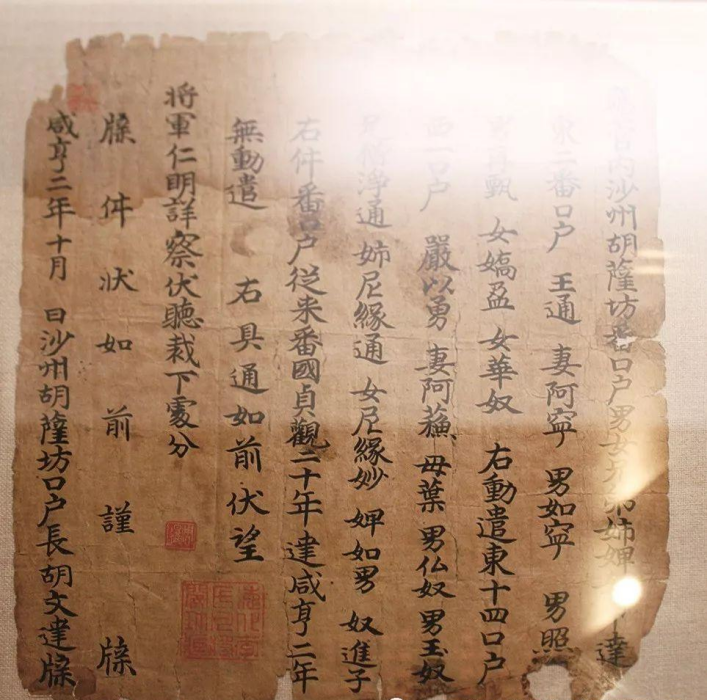 內沙州胡薩坊番口户男女兄弟姉婢 達
東二番口户 王通 妻阿寜 男如寜 男照
甄 女嬌盈 女華奴 右動遣東十四口户
西一口户 嚴以勇 妻阿蘓 毋葉 男仏奴 男玉奴
淨通 姉尼緣通 女尼緣妙 婢如男 奴進子
右件番口户從来番國貞觀二十年達咸亨二年
無動遣 右具通如前伏望
將軍仁明詳察伏聽裁下䖏分
牒件狀如前謹牒
咸亨二年十月 日沙州胡薩坊口户長胡文達牒